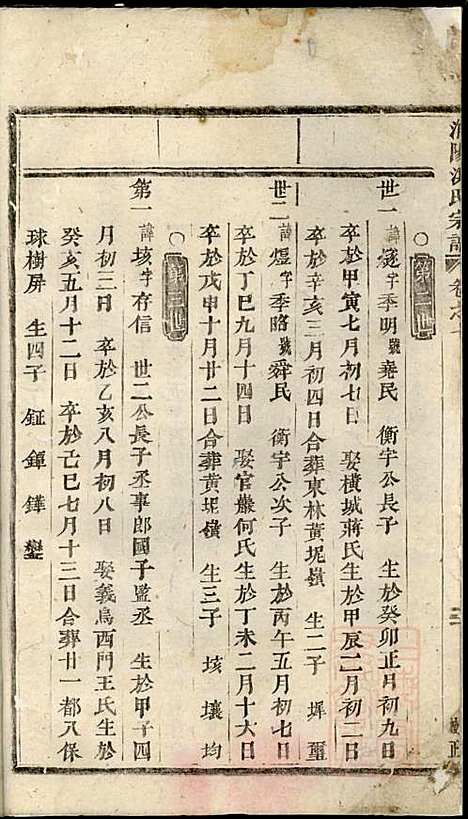 世一 諱寔字季明號堯民 衡宇公長子 生於癸卯正月初九日
卒於甲寅七月初七日 娶橫城蔣氏生於甲辰二月初二日
卒於辛亥三月初四日合葬東林黃坭嶺 生二子 墀 璽
世二 諱煜字季略號舜民 衡宇公次子 生於丙午五月初七日
卒於丁巳九月十四日 娶官巖何氏生於丁未二月十六日
卒於戊申十月廿二日合葬黃坭嶺 生三子 垓 壤 均
第一 諱垓字存信 世二公長子丞事郎國子監丞 生於甲子四
月初三日 卒於乙亥八月初八日 娶義烏西門王氏生於
癸亥五月十二日 卒於己巳七月十三日合葬廿一都八保
球樹屏 生四子 鉦 鐔 鏵 鑾